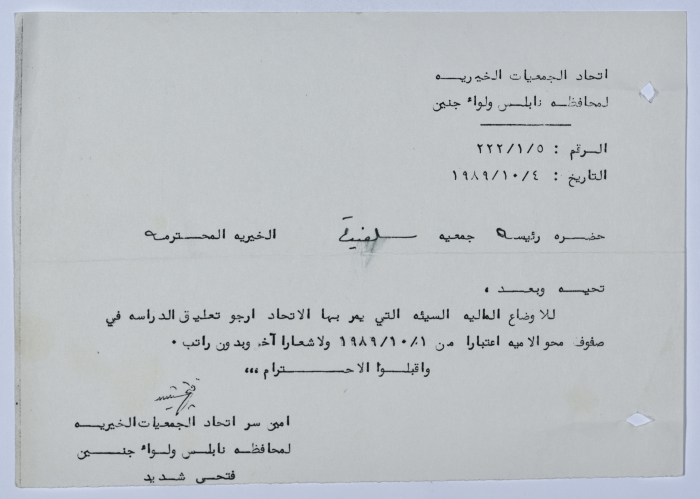 اتحاد الجمعيات الخيريه
لمحافظه نابلس ولواء جنين
الرقم : ٢٢٢/١/٥
التاريخ : ١٩٨٩/١٠/٤
حضره رئيسة جمعيه سلفيت الخيريه المحترمه
تحيه وبعد ،
للاوضاع الماليه السيئه التي يمر بها الاتحاد ارجو تعليق الدراسه في
صفوف محو الاميه اعتبارا من ١٩٨٩/١٠/١ ولاشعارا آخر وبدون راتب .
واقبلوا الاحترام ،،،
امين سر اتحاد الجمعيات الخيريه
لمحافظه نابلس ولواء جنين
فتحي شديد